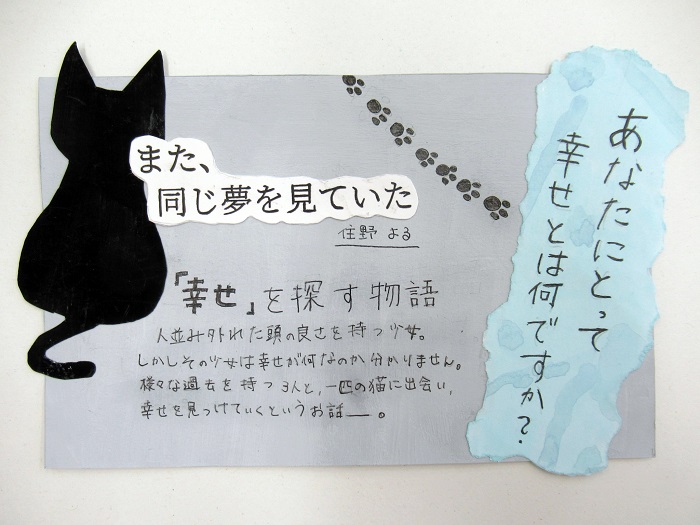 また、
同じ夢を見ていた
住野 よる
「幸せ」を探す物語
人並み外れた頭の良さを持つ少女。
しかしその少女は幸せが何なのか分かりません。
様々な過去を持つ3人と、一匹の猫に出会い、
幸せを見つけていくというお話―。
あなたにとって
幸せとは何ですか?